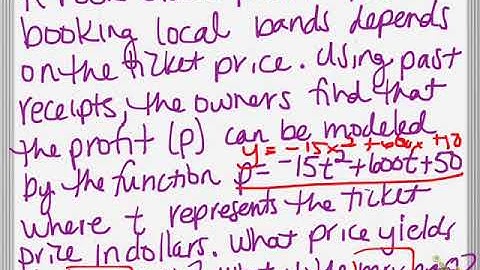 booking local bands depends
on the ticket price. Using past
receipts, the owners find that
the profit (p) can be modeled
y = -15x² + 600x + 50
by the function p = -15t² + 600t + 50
where t represents the ticket
price in dollars. What price yields